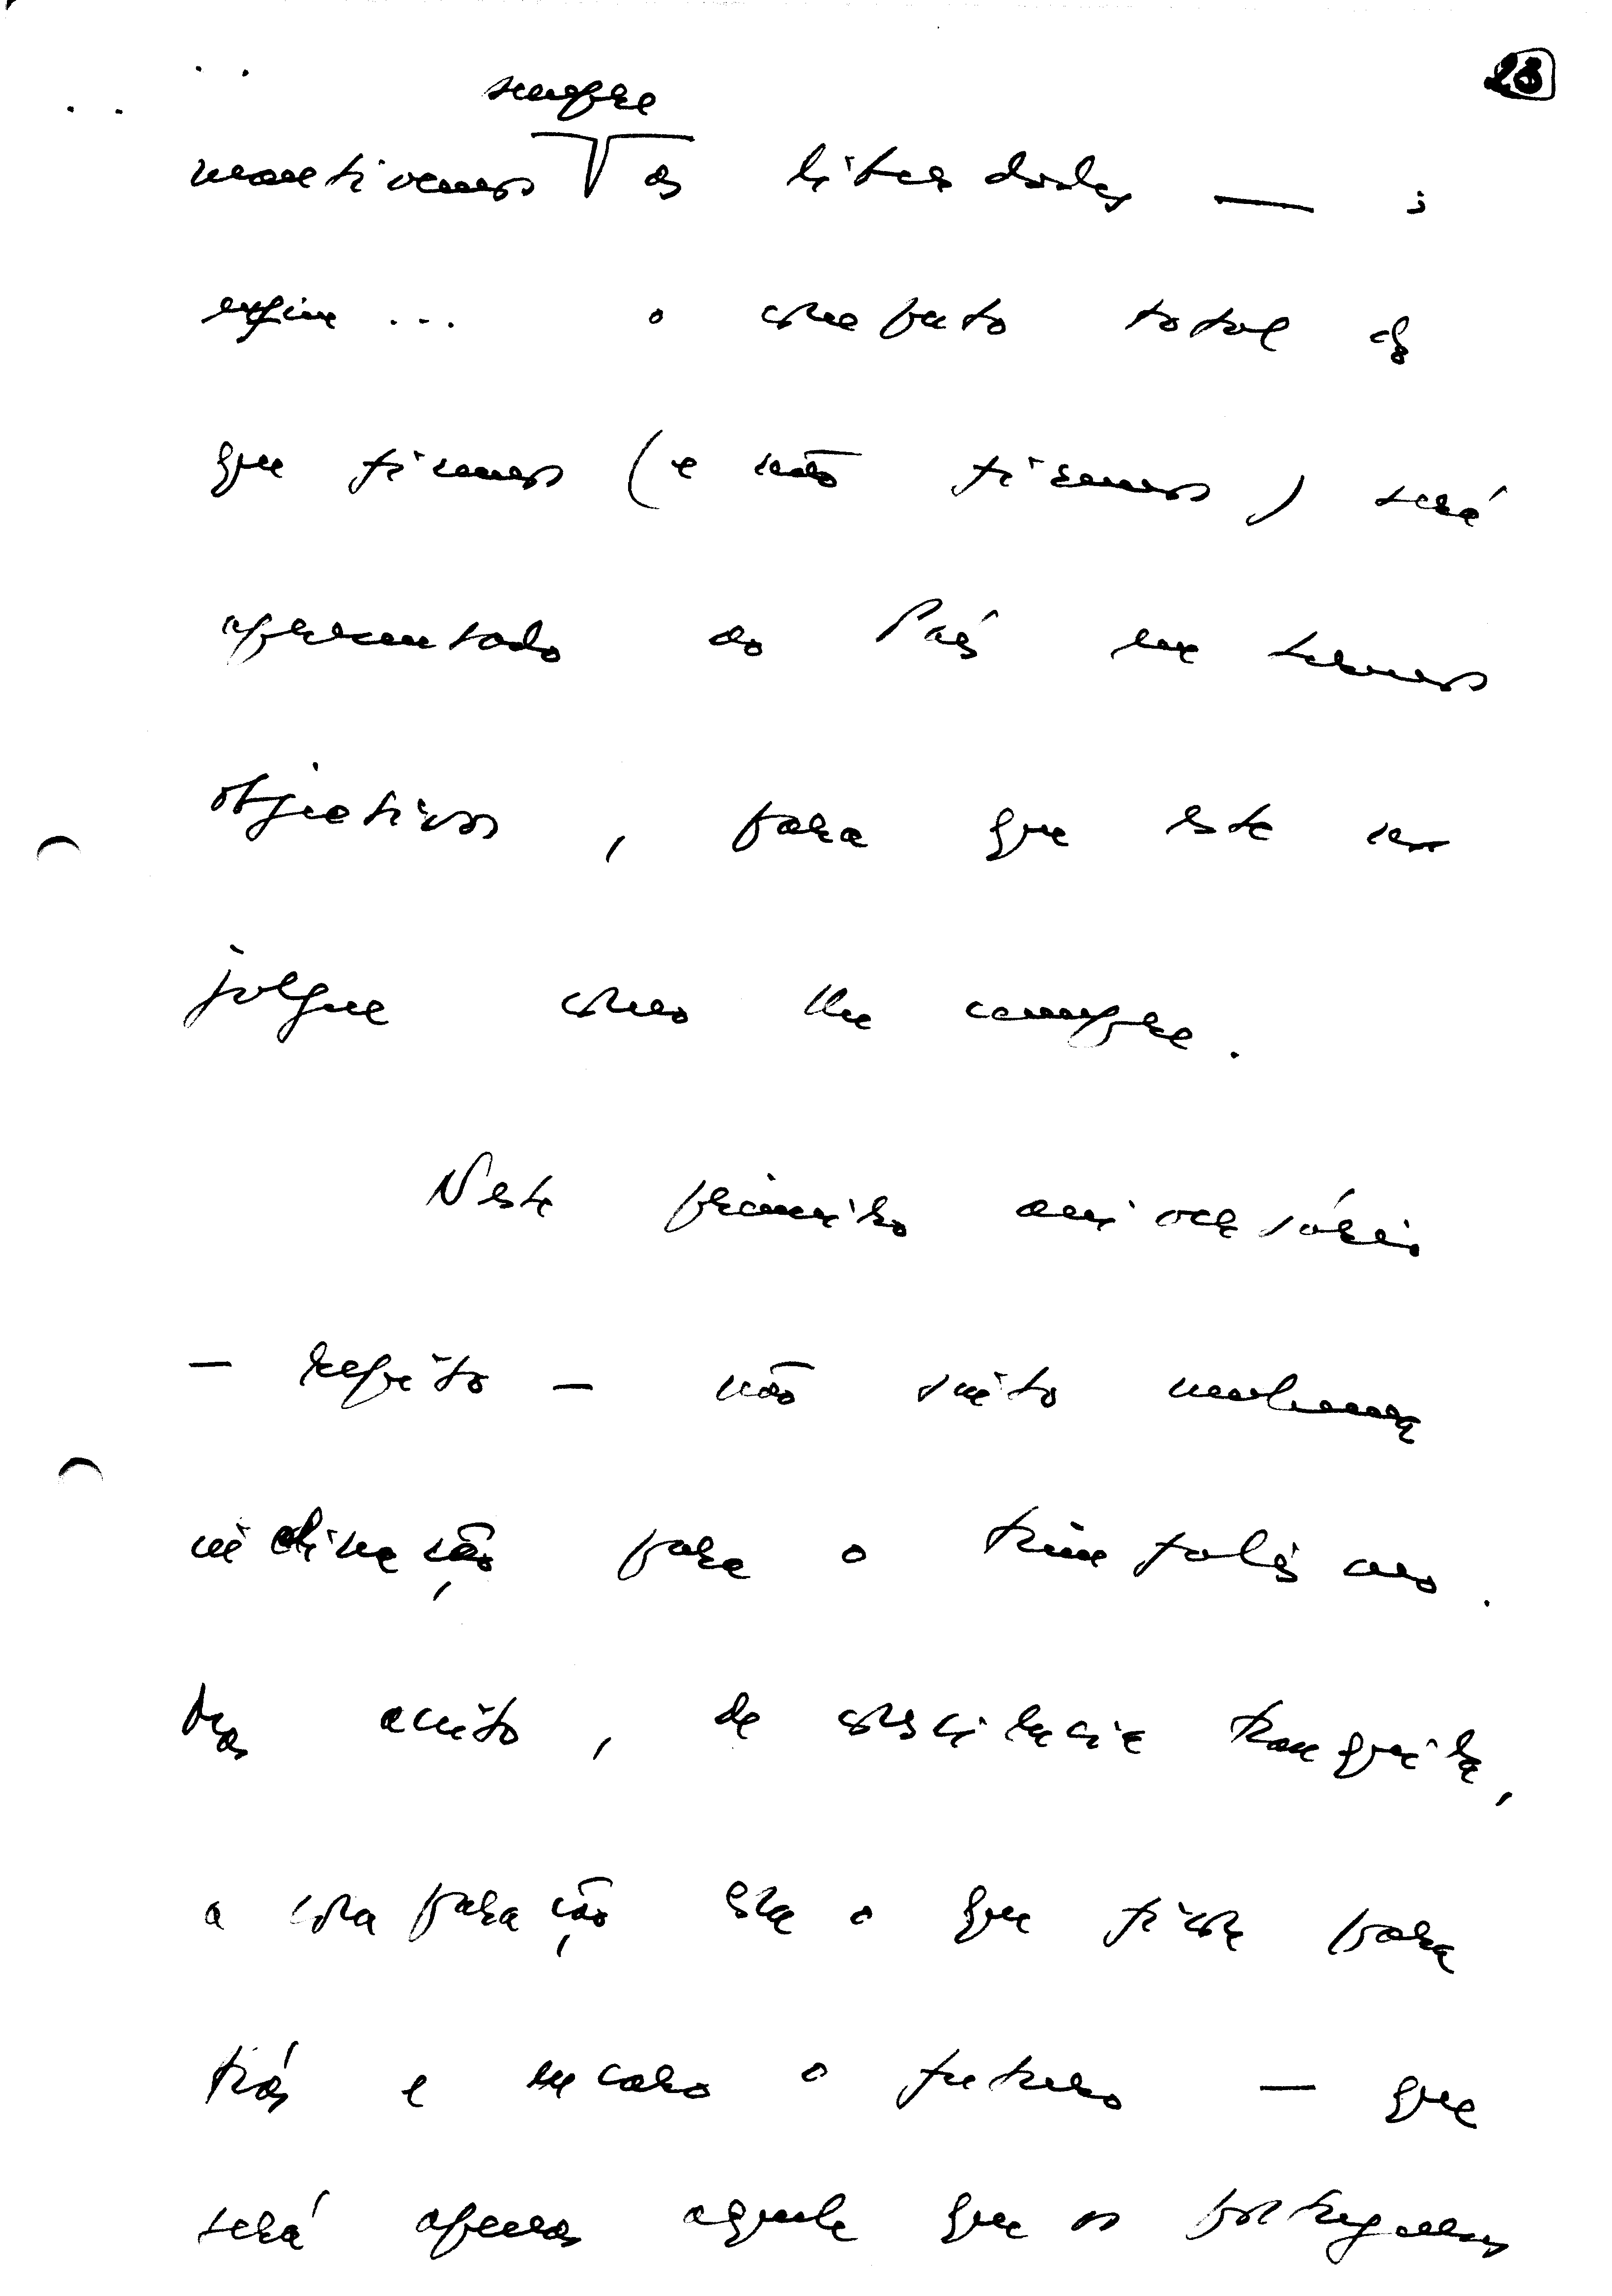 23
sempre
mantivemos as liberdades — ;
enfim ... o computo total do
que fizemos (e não fizemos) será
apresentado ao País em termos
objectivos, para que este nos
julgue como lhe cumpre.
Neste primeiro aniversário
— repito — não sinto nenhuma
inclinação para o triunfalismo.
Mas aceito, de consciência tranquila,
a comparação com o que ficou para
trás e encaro o futuro — que
será apenas aquele que os portugueses